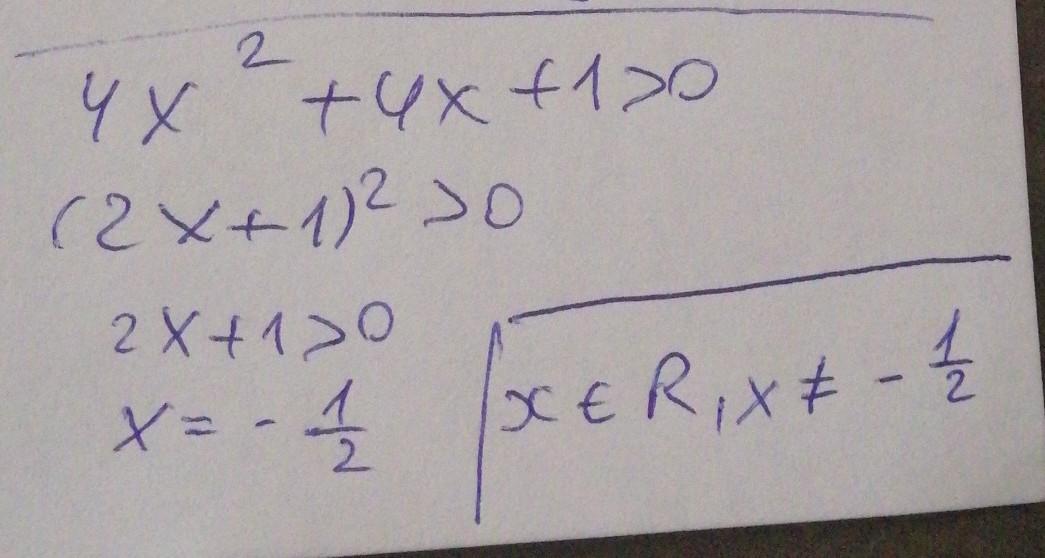 4x² + 4x + 1 > 0
(2x + 1)² > 0
2x + 1 > 0
x = - 1/2
x ∈ R, x ≠ - 1/2